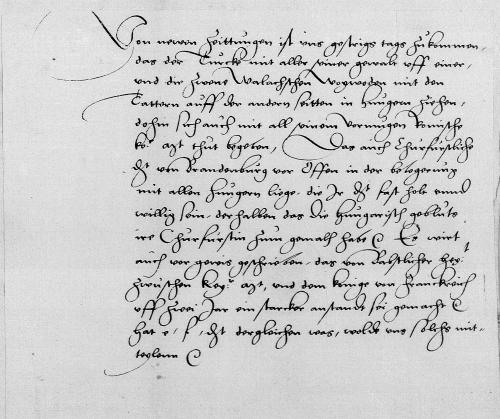 Von newen Zeittungen ist uns gestrigs tags zukommen,
das der Turcke mit aller seiner gewalt uff einer,
und die zwene Walachschen Weyweden mit den
Tattern auff der andern seitten in Hungern ziehen,
dohin sich auch mit all seinem vermugen Romische
ko: mat thut begeben, Das auch Churfurstliche
von Brandenburg vor Offen in der belegerung
mit allen Hungern liege, die Ir fast holt unnd
willig sein, derhalben das die Hungarisch gebluts
ire Churfurstin zum gemalh habe Es wirt
auch vor gewis geschrieben, das von Babstlicher hey:
zwuschen Key: mat, und dem konige von Franckreich
uff zwei Jar ein starcker anstandt sei gemacht
hat e, f, dergleichen was, wolde uns solchs mit-
teylenn